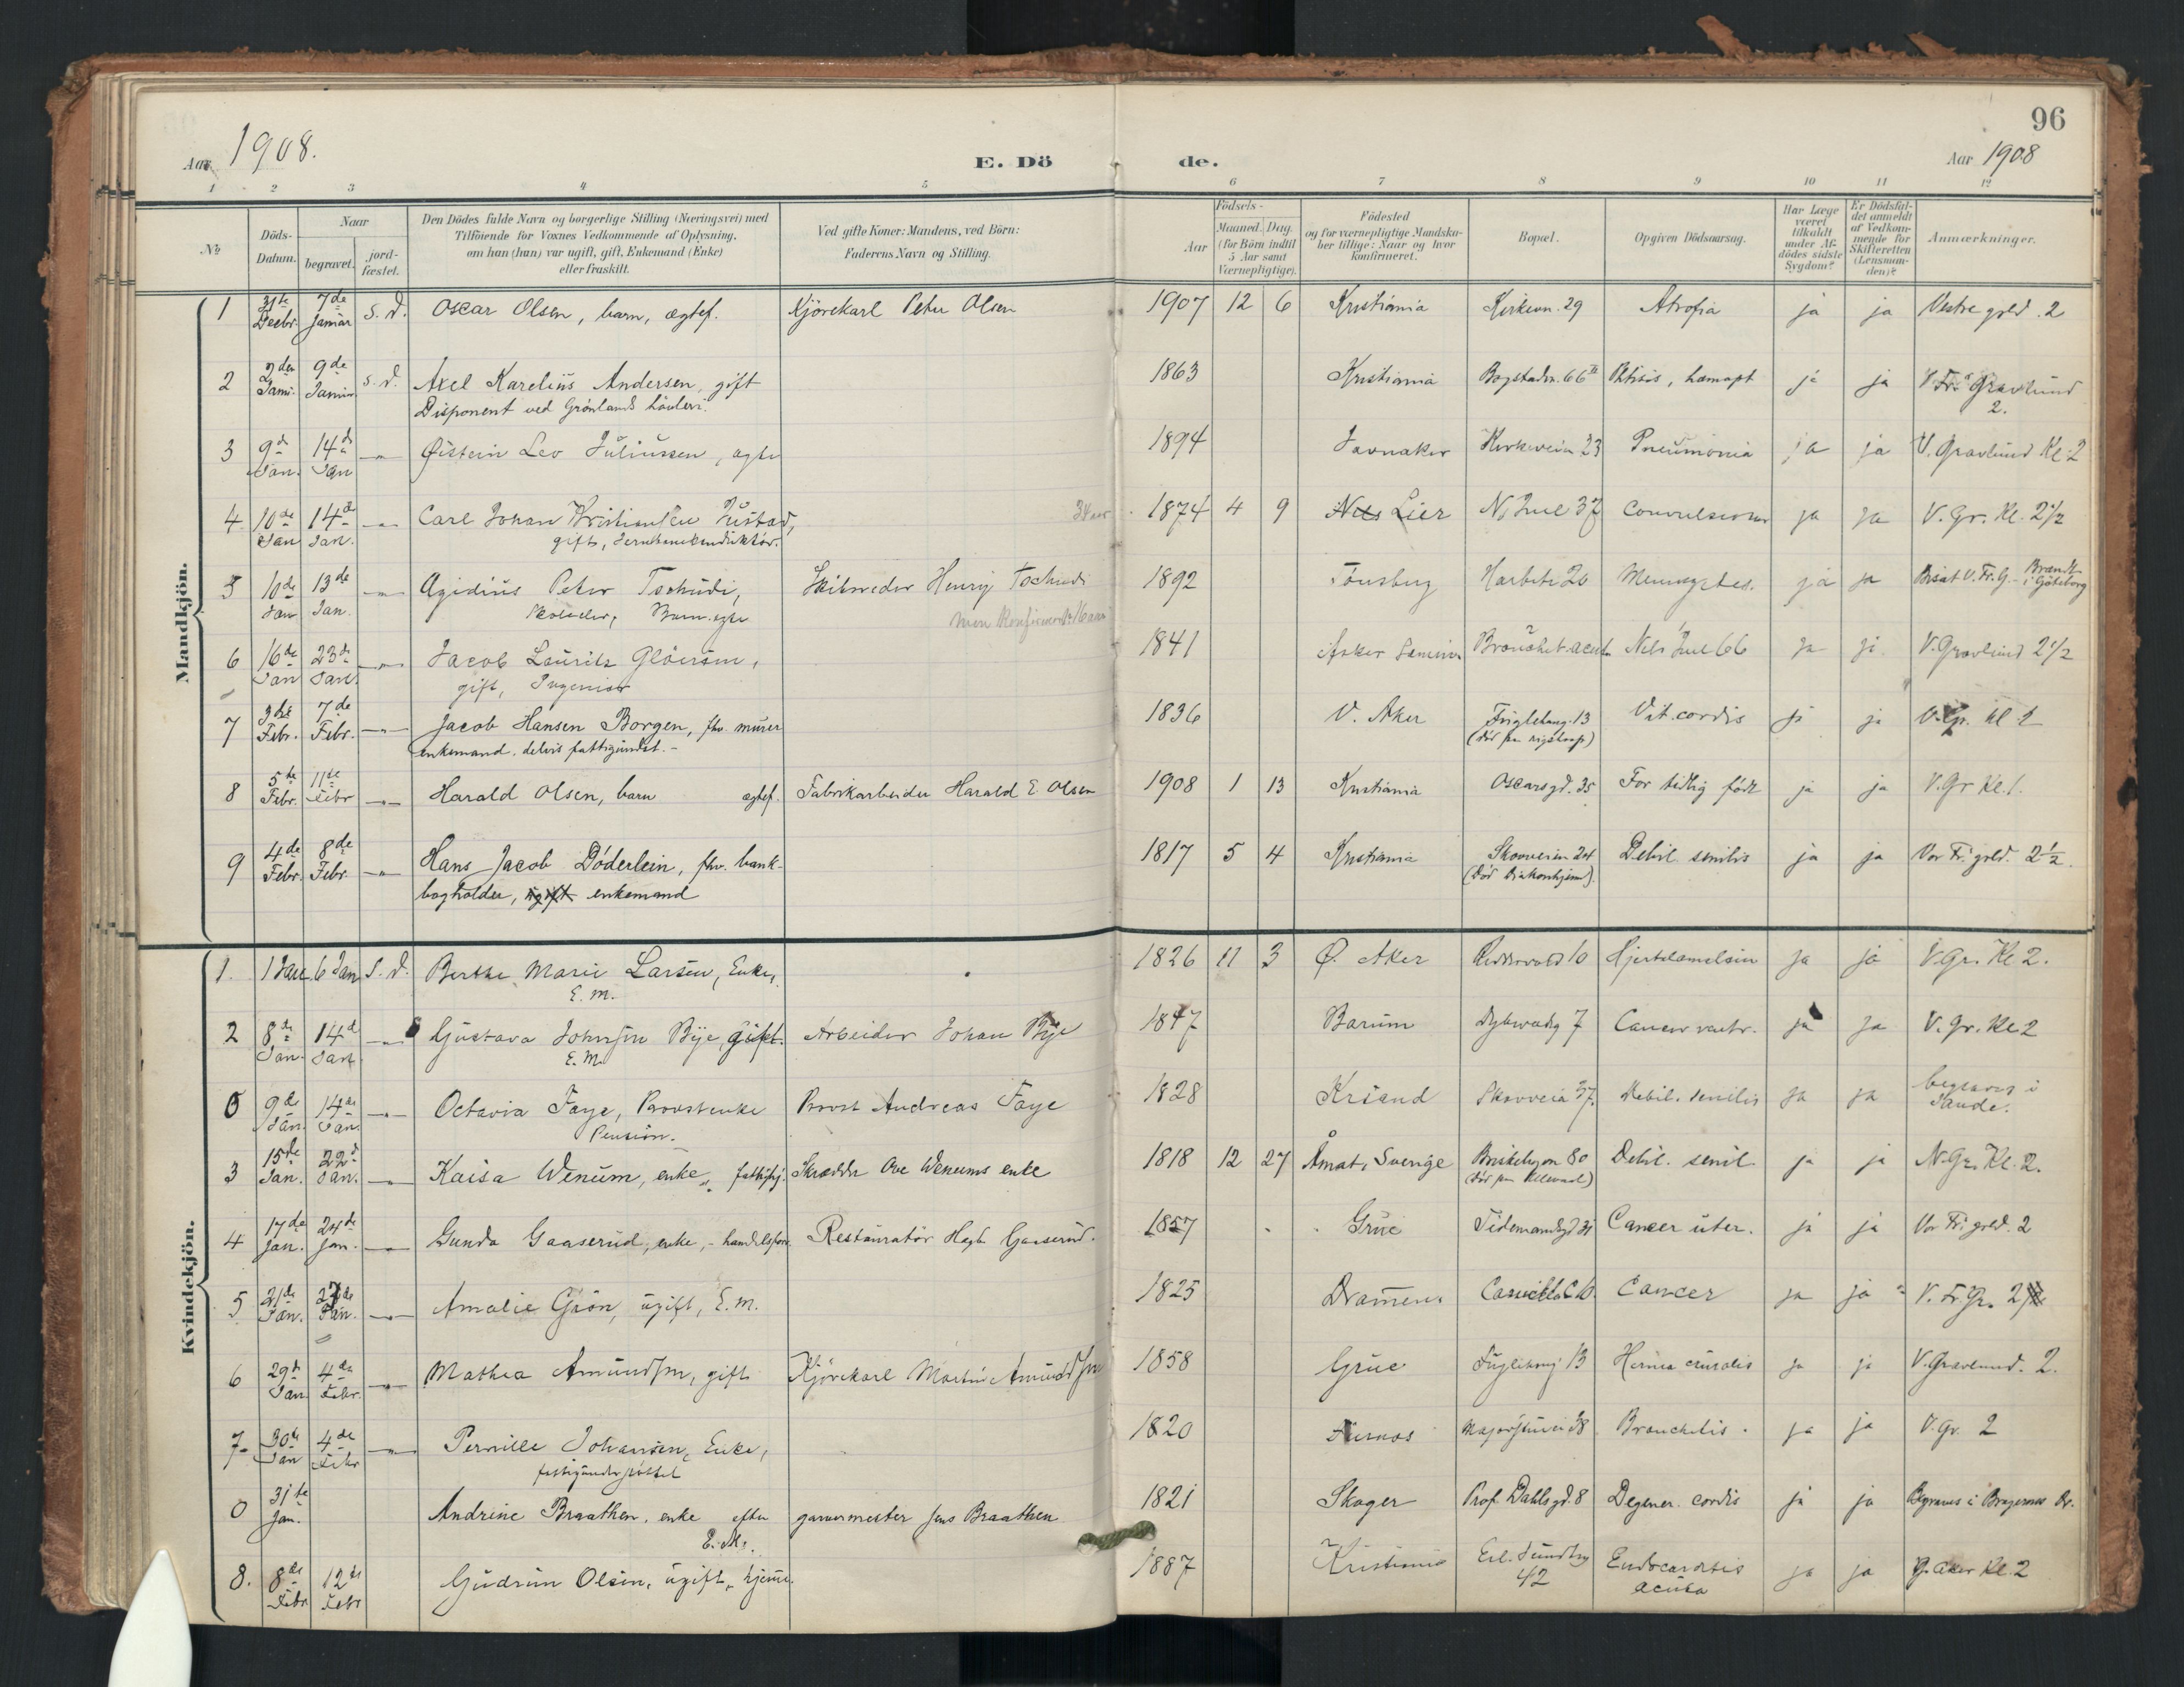 96
Aar 1908.
E. Dö
de.
Aar 1908
1 2 3 4 5 6 7 8 9 10 11 12
No.
Döds-
Datum.
Naar
begravet.
jord-
fæstet.
Den Dödes fulde Navn og borgerlige Stilling (Næringsvei) med
Tilföiende for Voxnes Vedkommende af Oplysning,
om han (hun) var ugift, gift, Enkemand (Enke)
eller fraskilt.
Ved gifte Koner: Mandens, ved Börn:
Faderens Navn og Stilling.
Födsels-
Aar
Maaned. Dag.
(for Börn indtil
5 Aar samt
Værnepligtige).
Födested
og for værnepligtige Mandska-
ber tillige: Naar og hvor
konfirmeret.
Bopæl.
Opgiven Dödsaarsag.
Har Læge
været
tilkaldt
under Af-
dödes sidste
Sygdom?
Er Dödsfal-
det anmeldt
af Vedkom-
mende for
Skifteretten
(Lensman-
den)?
Anmærkninger.
Mandkjön.
1 31te Decbr. 7de Januar s. d. Oscar Olsen, barn, ægtef. Kjörekarl Peter Olsen 1907 12 6 Kristiania Kirkevn. 29 Atrofia ja ja Vestre grld. 2
2 2den Janu. 9de Januar s. d. Axel Karelius Andersen, gift 1863 Kristiania Bogstadvn. 66 II Phtisis, hæmopt ja ja V. Fr. Gravlund
Disponent ved Grönlands hövleri. 2.
3 9de Jan. 14de Jan —„— Øistein Leo Juliussen, ægte 1894 Jevnaker Kirkeveien 23 Pneumonia ja ja V. Gravlund Kl. 2
4 10de Jan 14de Jan. —„— Carl Johan Kristiansen Rustad, 34 aar 1874 4 9 Lier N. Juel 37 Convulsioner ja ja V. Gr. Kl. 2½
gift, Jernbanekonduktör.
5 10de Jan 13de Jan. —„— Agidius Peter Tschudi, Skibsreder Henry Tschudi 1892 Tönsberg Harbitz 20 ja ja Bisat V. Fr. G. - Brændt i Göteborg
Barn. ægte
6 16de Jan 23de Jan. —„— Jacob Lauritz Glöersen, 1841 Asker Bronchit. acut Nels Juel 66 ja ja V. Gravlund 2½
gift, Ingeniør
7 3die Febr. 7de Febr. —„— Jacob Hansen Borgen, fhv. murer 1836 V. Aker Fuglehaug. 13 Vit. cordis ja ja V. Gr. Kl 1
enkemand. delvis fattigundst. - (död paa rigshosp)
8 5te Febr. 11te Febr —„— Harald Olsen, barn ægtef. Fabrikarbeider Harald E. Olsen 1908 1 13 Kristiania Oscarsgd. 35 For tidlig födt ja ja V. Gr Kl. 1.
9 4de Febr. 8de Febr. —„— Hans Jacob Döderlein, fhv. bank- 1817 5 4 Kristiania Skovveien 24 Debil. senilis ja ja Vor Fr. grld. 2½.
bogholder, ugift enkemand (död Diakonhjem).
Kvindekjön.
1. 1 Jan 6 Jan s. d. Berthe Marie Larsen, Enke, 1826 11 3 Ø. Aker Riddervold 10 Hjertelamelsen ja ja V. Gr. Kl 2.
E. M.
2 8de Jan. 14de Jan —„— Gustava Johnsen Bye, gift. Arbeider Johan Bye 1847 Bærum Dybwadg 7 Cancer ventr. ja ja V. Gr. Kl 2
E. M.
0 9de Jan. 14de Jan. —„— Octavia Faye, Provstenke Provst Andreas Faye 1828 Krsand Skovveien 37. Debil. senilis ja ja begraves i Sande.
Pension.
3 15de Jan. 22d Jan. —„— Kaisa Wenum, enke „ fattighj. Skrædder Ove Wenums enke 1818 12 27 Åmat, Sverige Briskebyvn 80 Debil. senil. ja ja N. Gr. Kl. 2.
4 17de Jan. 24de Jan. —„— Gunda Gaaserud, enke, - handelsforr. Restauratör Hagb. Gaaserud. 1857 Grue Tidemandsgd 31 Cancer uter. ja ja Vor Fr. grld. 2
5 21de Jan. 27de Jan. —„— Amalie Grön, ugift, E. M. 1825 Drammen Camilla C 10 Cancer ja ja V. Fr. Gr. 2
6 29d Jan 4de Febr. —„— Mathea Amundsen, gift Kjörekarl Martin Amundsen 1858 Grue Fuglehaug 13 Hernia cruralis ja ja V. Gravlund. 2.
7. 30de Jan 4de Febr —„— Pernille Johansen, Enke, 1820 Majorstuvei 38 Bronchitis. ja ja V. Gr. 2
fattigunderstöttet
0 31te Jan. Andrine Braathen, enke efter garvermester Jens Braathen 1821 Skoger Prof. Dahls gd. 8 Degener. cordis ja ja Begraves i Bragernes
E. M.
8. 8de Febr 12te Febr Gudrun Olsen, ugift, hjemme. 1887 Kristiania Eil. Sundtsg 42 Endocarditis acuta ja ja Ø. Aker Kl. 2